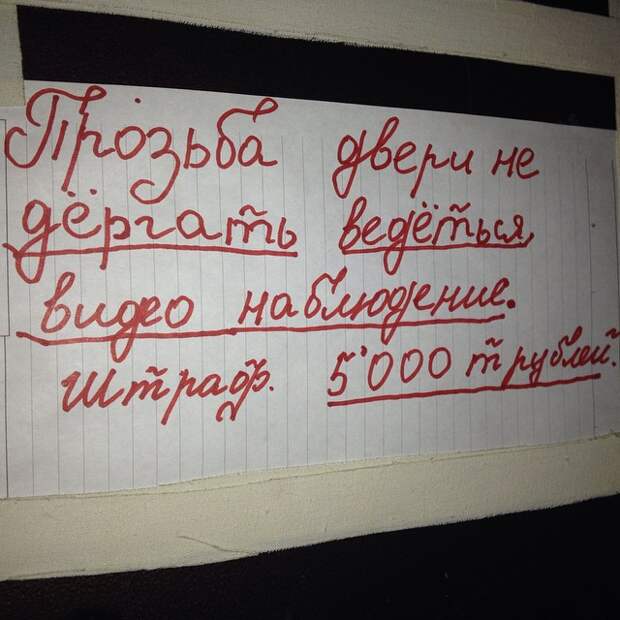 Прозьба двери не
дёргать ведёться,
видео наблюдение.
Штраф. 5'000 т рублей.